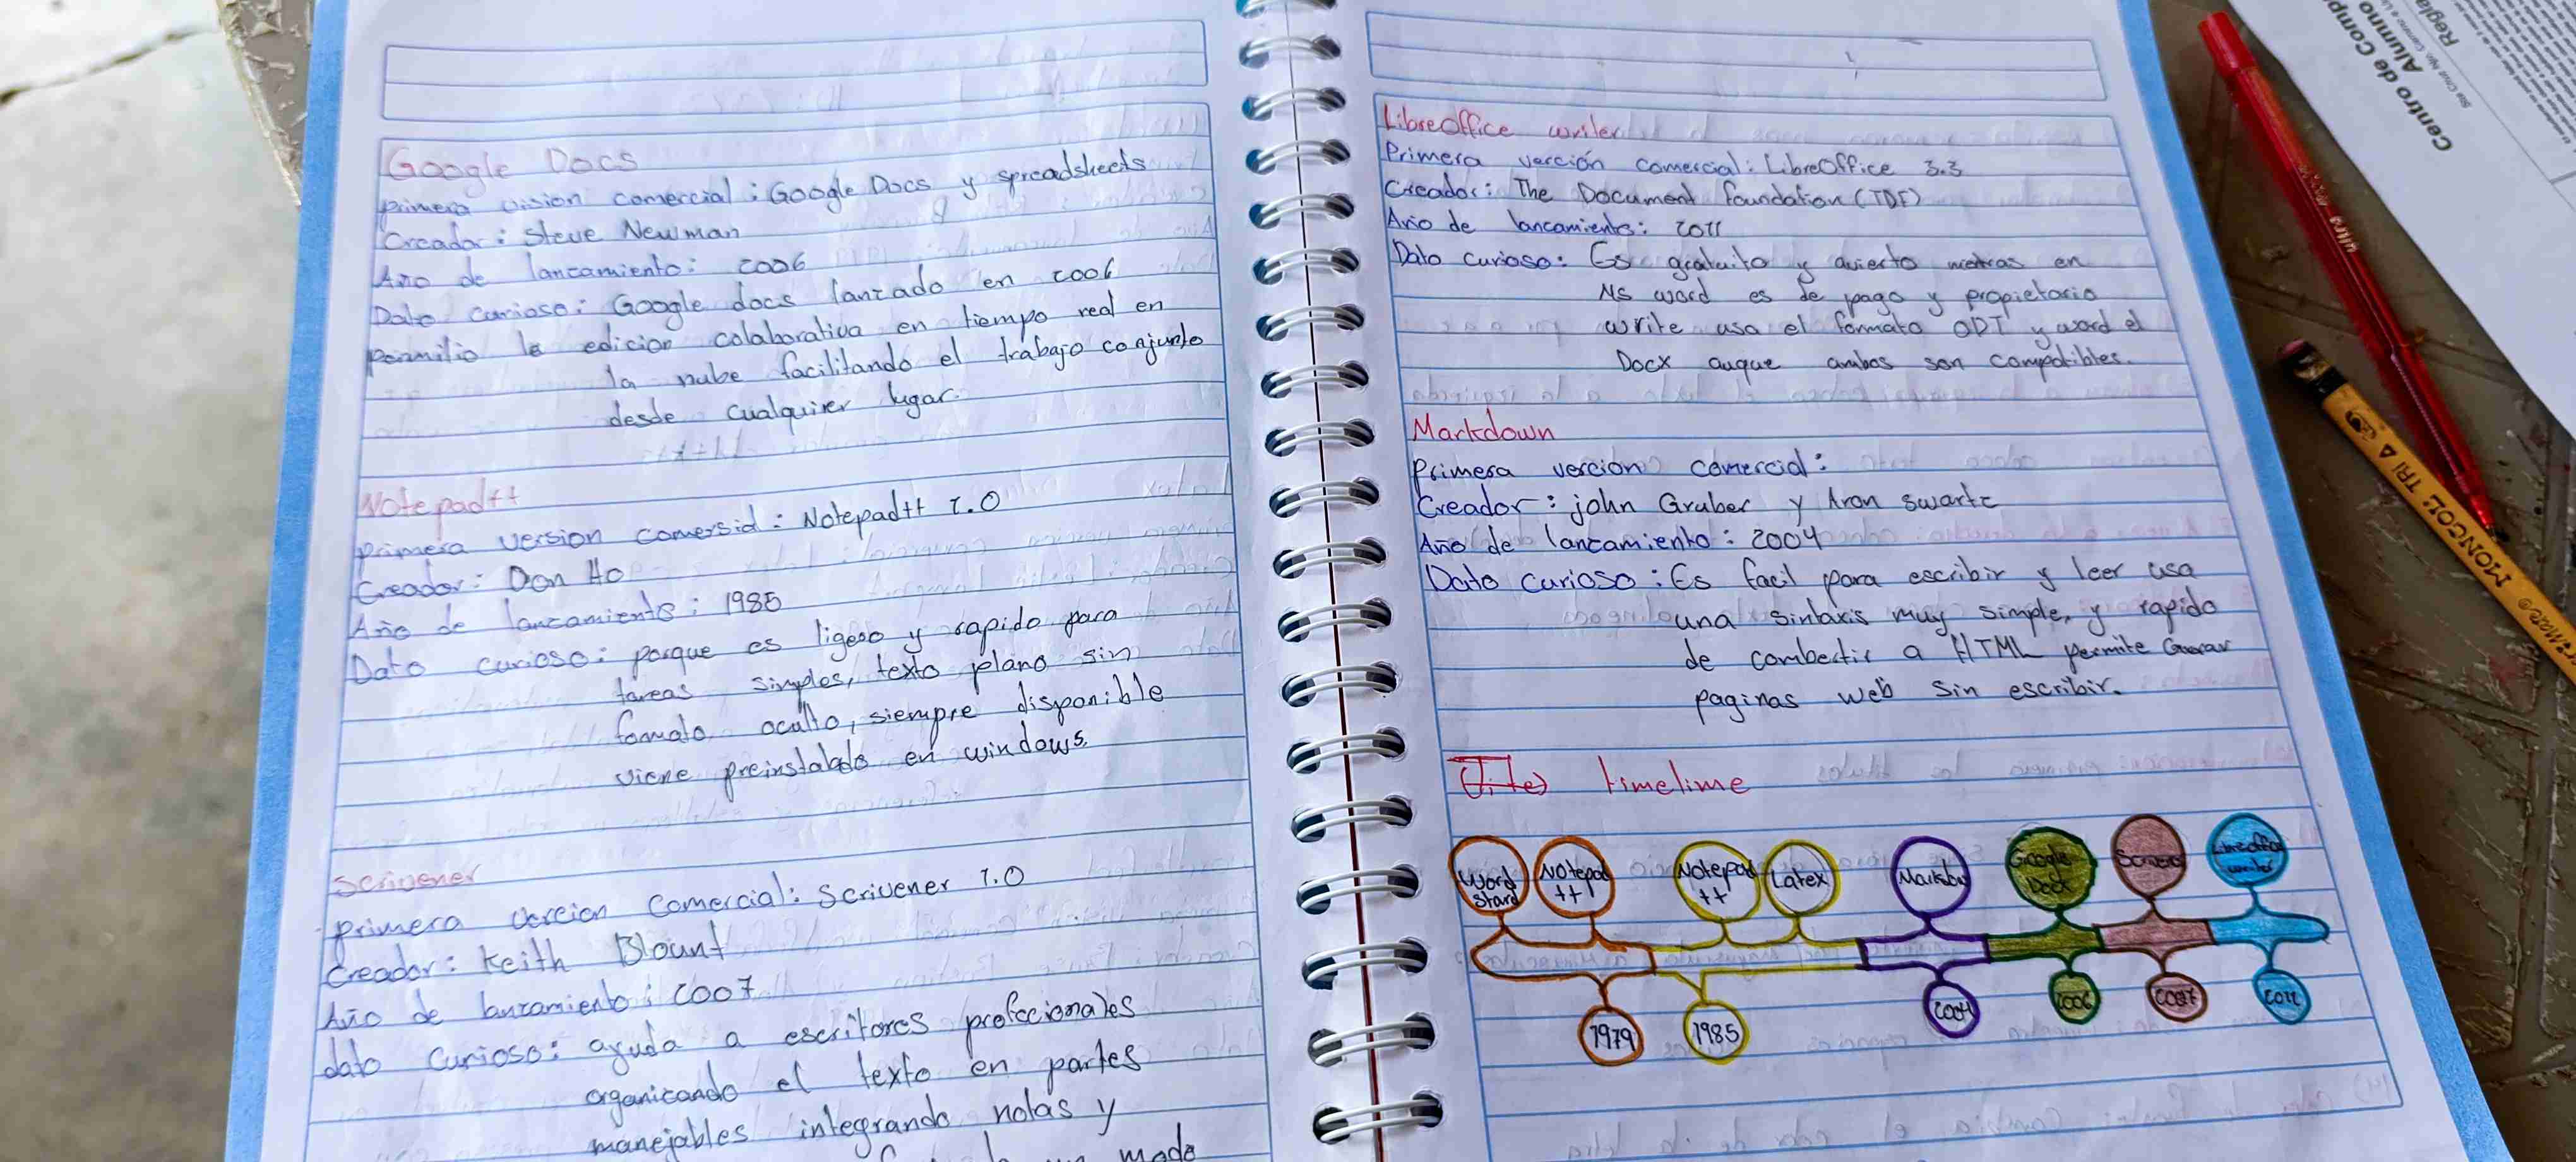 Google Docs
primera vision comercial : Google Docs y spreadsheets
Creador : Steve Newman
Año de lancamiento: 2006
Dato curioso: Google docs lanzado en 2006
permitio la edicion colaborativa en tiempo real en
la nube facilitando el trabajo conjunto
desde cualquier lugar.
Notepad++
primera version comersial : Notepad++ 1.0
Creador: Don Ho
Año de lancamiento: 1985
Dato curioso: porque es ligero y rapido para
tareas simples, texto plano sin
formato oculto, siempre disponible
viene preinstalado en windows.
Scrivener
primera vercion comercial: Scrivener 1.0
Creador: Keith Blount
Año de lancamiento: 2007
dato curioso: ayuda a escritores profecionales
organizando el texto en partes
manejables integrando notas y
un modo
LibreOffice writer
Primera verción comercial: LibreOffice 3.3
Creador: The Document foundation (TDF)
Año de lancamiento: 2011
Dato curioso: Es gratuito y avierto metras en
Ms word es de pago y propietario
write usa el formato ODT y word el
Docx auque ambos son compatibles.
Markdown
Primera vercion comercial:
Creador : john Gruber y Aron swartz
Año de lancamiento : 2004
Dato curioso : Es facil para escribir y leer usa
una sintaxis muy simple, y rapido
de combertir a HTML permite
paginas web sin escribir.
timelime
Word Stard
Notepad ++
Notepad ++
Latex
Google Docs
LibreOffice writer
1979
1985
2004
2006
2007
2011
Centro de Comp
Alumno
Regla
MONGOL TRI